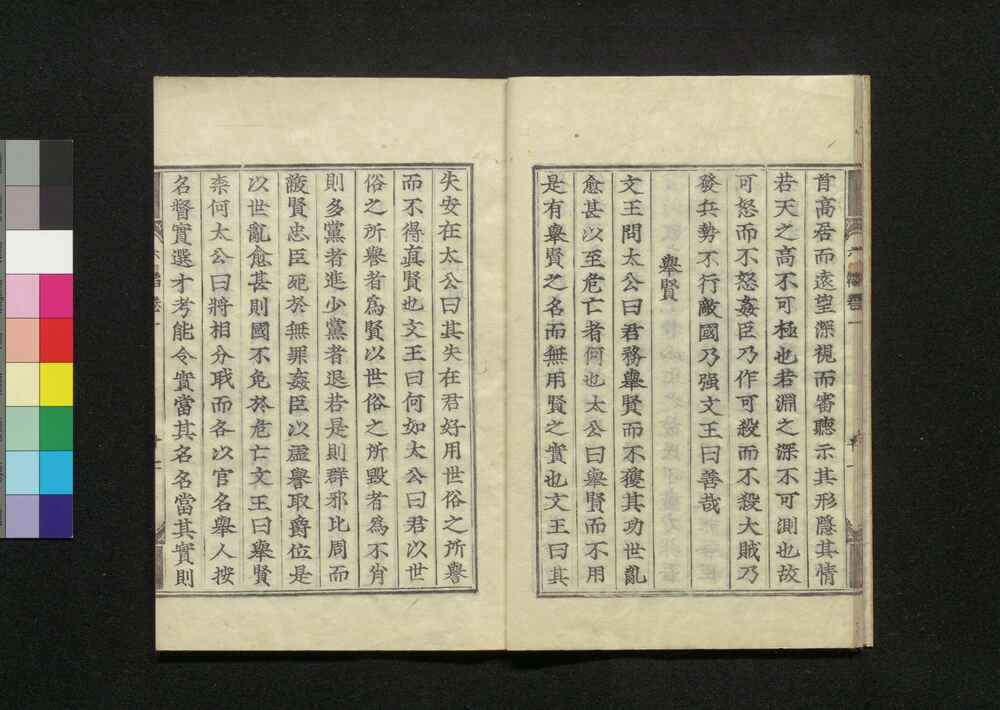 首高居而遠望深視而審聽示其形隱其情
若天之高不可極也若淵之深不可測也故
可怒而不怒姦臣乃作可殺而不殺大賊乃
發兵勢不行敵國乃强文王曰善哉
舉賢
文王問太公曰君務舉賢而不獲其功世亂
愈甚以至危亡者何也太公曰舉賢而不用
是有舉賢之名而無用賢之實也文王曰其
失安在太公曰其失在君好用世俗之所譽
而不得眞賢也文王曰何如太公曰君以世
俗之所譽者爲賢以世俗之所毀者爲不肖
則多黨者進少黨者退若是則群邪比周而
蔽賢忠臣死於無罪姦臣以虛譽取爵位是
以世亂愈甚則國不免於危亡文王曰舉賢
柰何太公曰將相分職而各以官名舉人按
名督實選才考能令實當其名名當其實則